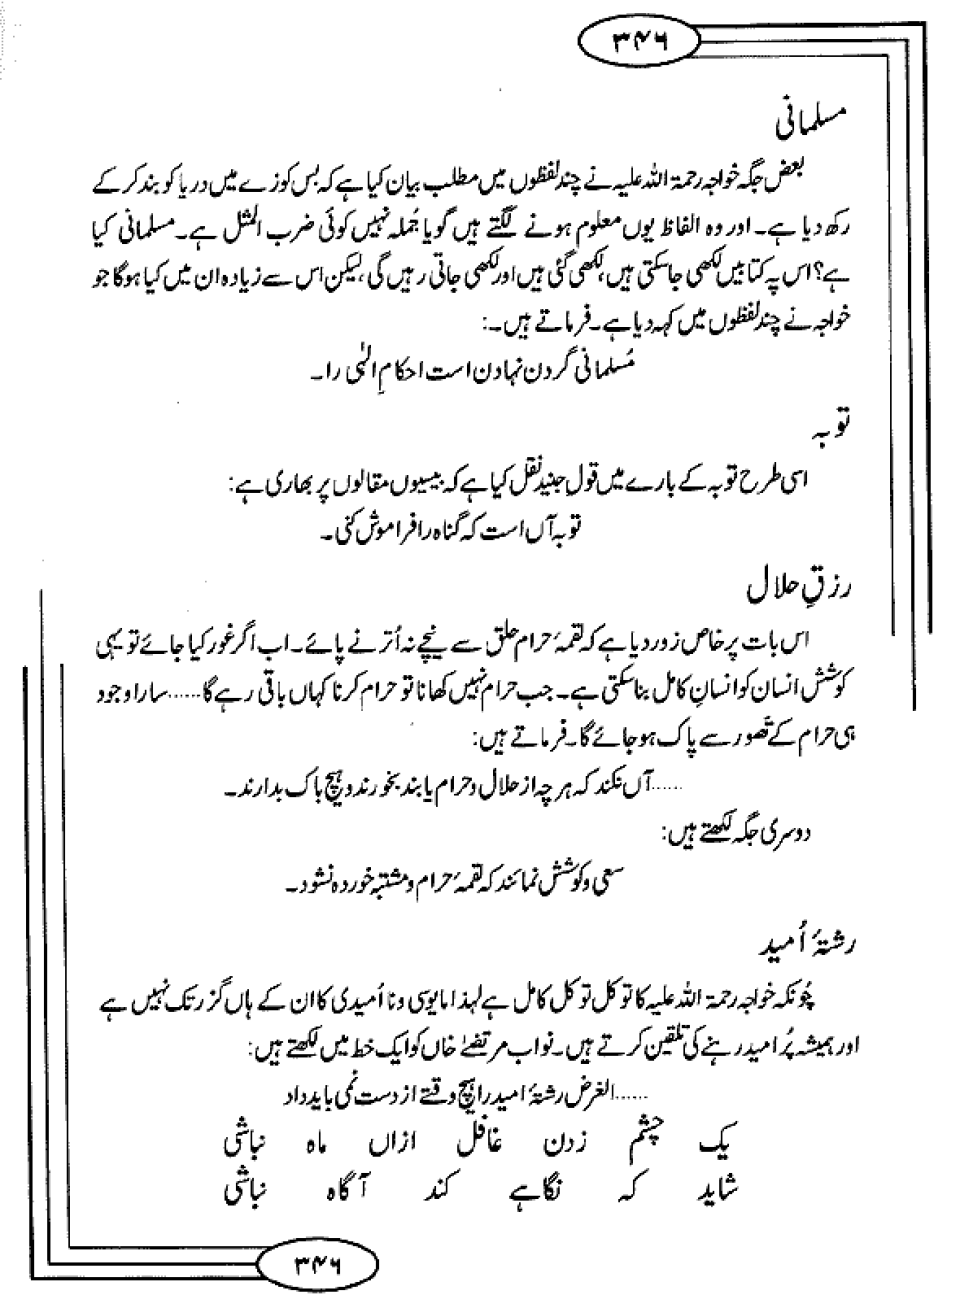 ۳۴۶
مسلمانی
بعض جگہ خواجہ رحمۃ اللہ علیہ نے چند لفظوں میں مطلب بیان کیا ہے کہ بس کوزے میں دریا کو بند کر کے
رکھ دیا ہے۔ اور وہ الفاظ یوں معلوم ہونے لگتے ہیں گویا جُملہ نہیں کوئی ضرب المثل ہے۔ مسلمانی کیا
ہے؟ اس پہ کتابیں لکھی جا سکتی ہیں، لکھی گئی ہیں اور لکھی جاتی رہیں گی، لیکن اس سے زیادہ ان میں کیا ہوگا جو
خواجہ نے چند لفظوں میں کہہ دیا ہے۔ فرماتے ہیں۔:
مُسلمانی گردن نہادن است احکامِ الٰہی را۔
توبہ
اسی طرح توبہ کے بارے میں قولِ جنید نقل کیا ہے کہ بیسیوں مقالوں پر بھاری ہے:
توبہ آں است کہ گناہ را فراموش کنی۔
رزقِ حلال
اس بات پر خاص زور دیا ہے کہ لقمۂ حرام حلق سے نیچے نہ اُترنے پائے۔ اب اگر غور کیا جائے تو یہی
کوشش انسان کو انسانِ کامل بنا سکتی ہے۔ جب حرام نہیں کھانا تو حرام کرنا کہاں باقی رہے گا...... سارا وجود
ہی حرام کے تصّور سے پاک ہو جائے گا۔ فرماتے ہیں:
......آں نکند کہ ہر چہ از حلال و حرام یابند بخورند و ہیچ باک بدارند۔
دوسری جگہ لکھتے ہیں:
سعی و کوشش نمائند کہ لقمۂ حرام و مشتبہ خوردہ نشود۔
رشتۂ اُمید
چُونکہ خواجہ رحمۃ اللہ علیہ کا توکل توکل کامل ہے لہذا مایوسی و نا اُمیدی کا ان کے ہاں گزر تک نہیں ہے
اور ہمیشہ پُر امید رہنے کی تلقین کرتے ہیں۔ نواب مرتضےٰ خاں کو ایک خط میں لکھتے ہیں:
......الغرض رشتۂ امید را ہیچ وقتے از دست نمی باید داد
یک چشم زدن غافل ازاں ماہ نباشی
شاید کہ نگاہے کند آگاہ نباشی
۳۴۶